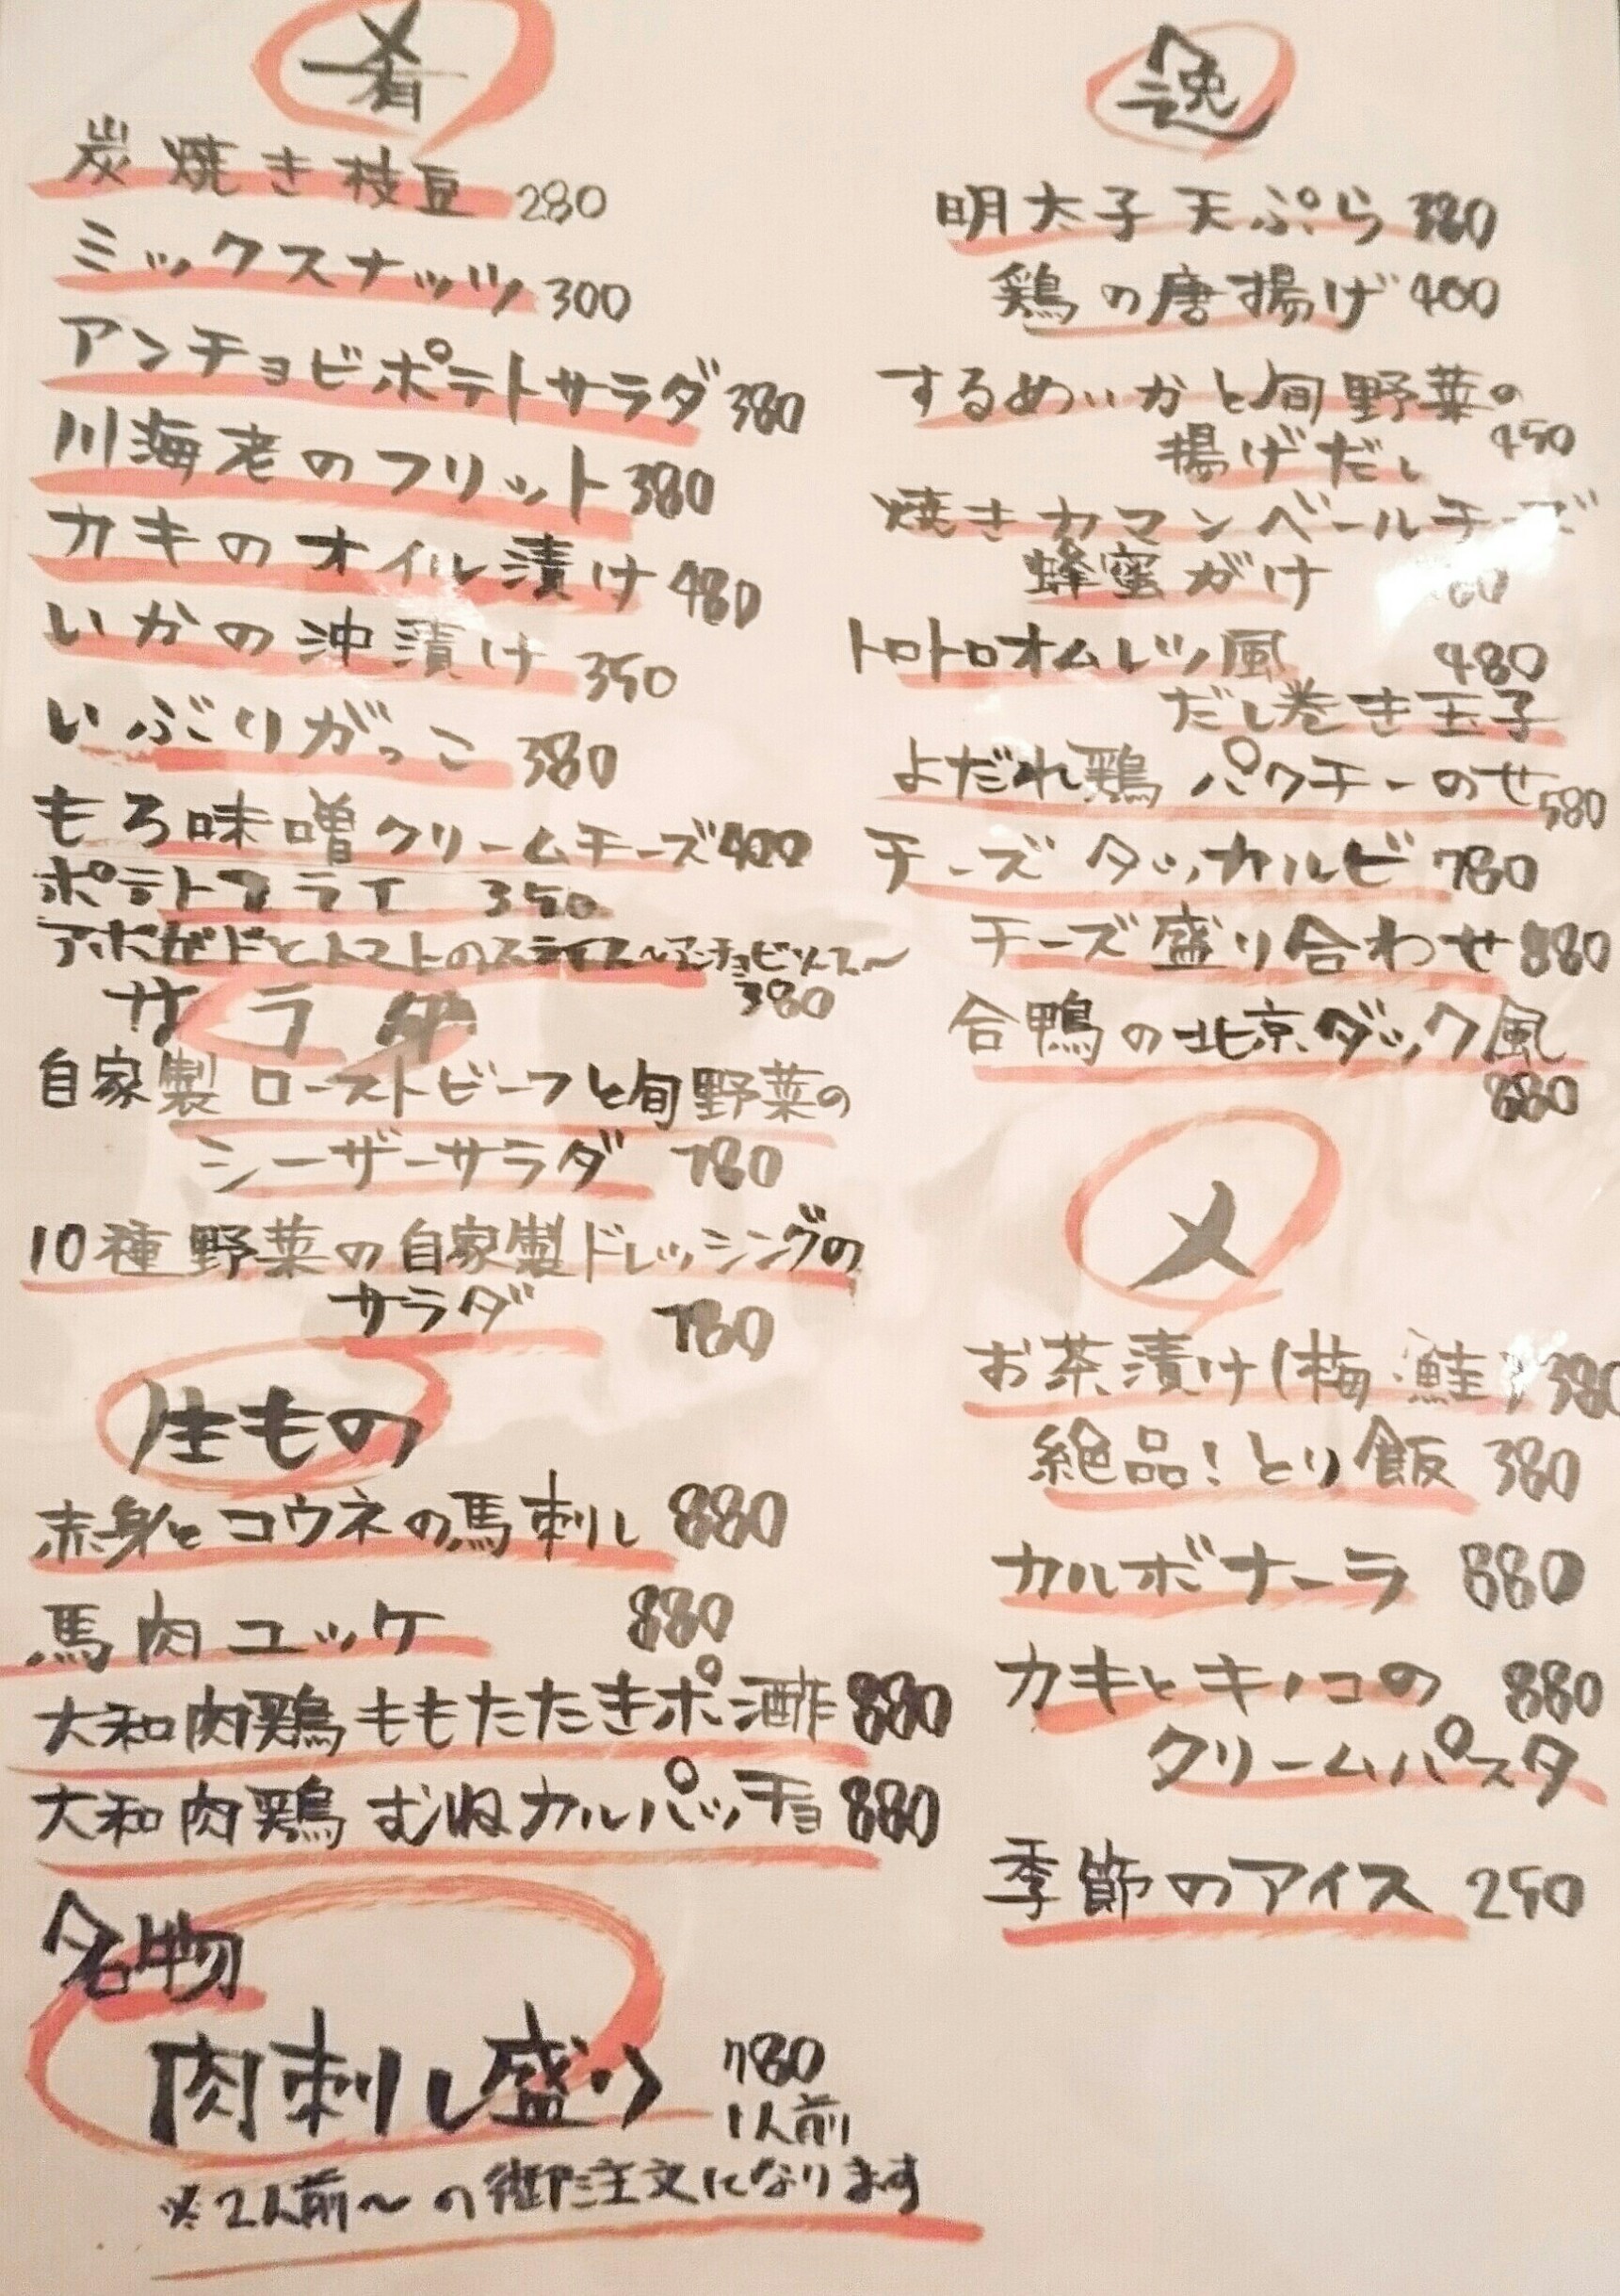 肴
炭焼き枝豆 280
ミックスナッツ 300
アンチョビポテトサラダ 380
川海老のフリット 380
カキのオイル漬け 480
いかの沖漬け 350
いぶりがっこ 380
もろ味噌クリームチーズ 400
ポテトフライ 350
アボガドとトマトのスライス〜アンチョビソース〜
380
サラダ
自家製ローストビーフと旬野菜の
シーザーサラダ 780
10種野菜の自家製ドレッシングの
サラダ 780
生もの
赤身とコウネの馬刺し 880
馬肉ユッケ 880
大和肉鶏ももたたきポン酢 880
大和肉鶏むねカルパッチョ 880
名物
肉刺し盛り 780
1人前
※2人前〜の御注文になります
逸
明太子天ぷら 380
鶏の唐揚げ 400
するめいかと旬野菜の
揚げだし 450
焼きカマンベールチーズ
蜂蜜がけ
トロトロオムレツ風 480
だし巻き玉子
よだれ鶏 パクチーのせ 580
チーズタッカルビ 780
チーズ盛り合わせ 880
合鴨の北京ダック風
880
〆
お茶漬け(梅・鮭) 380
絶品!とり飯 380
カルボナーラ 880
カキとキノコの 880
クリームパスタ
季節のアイス 250